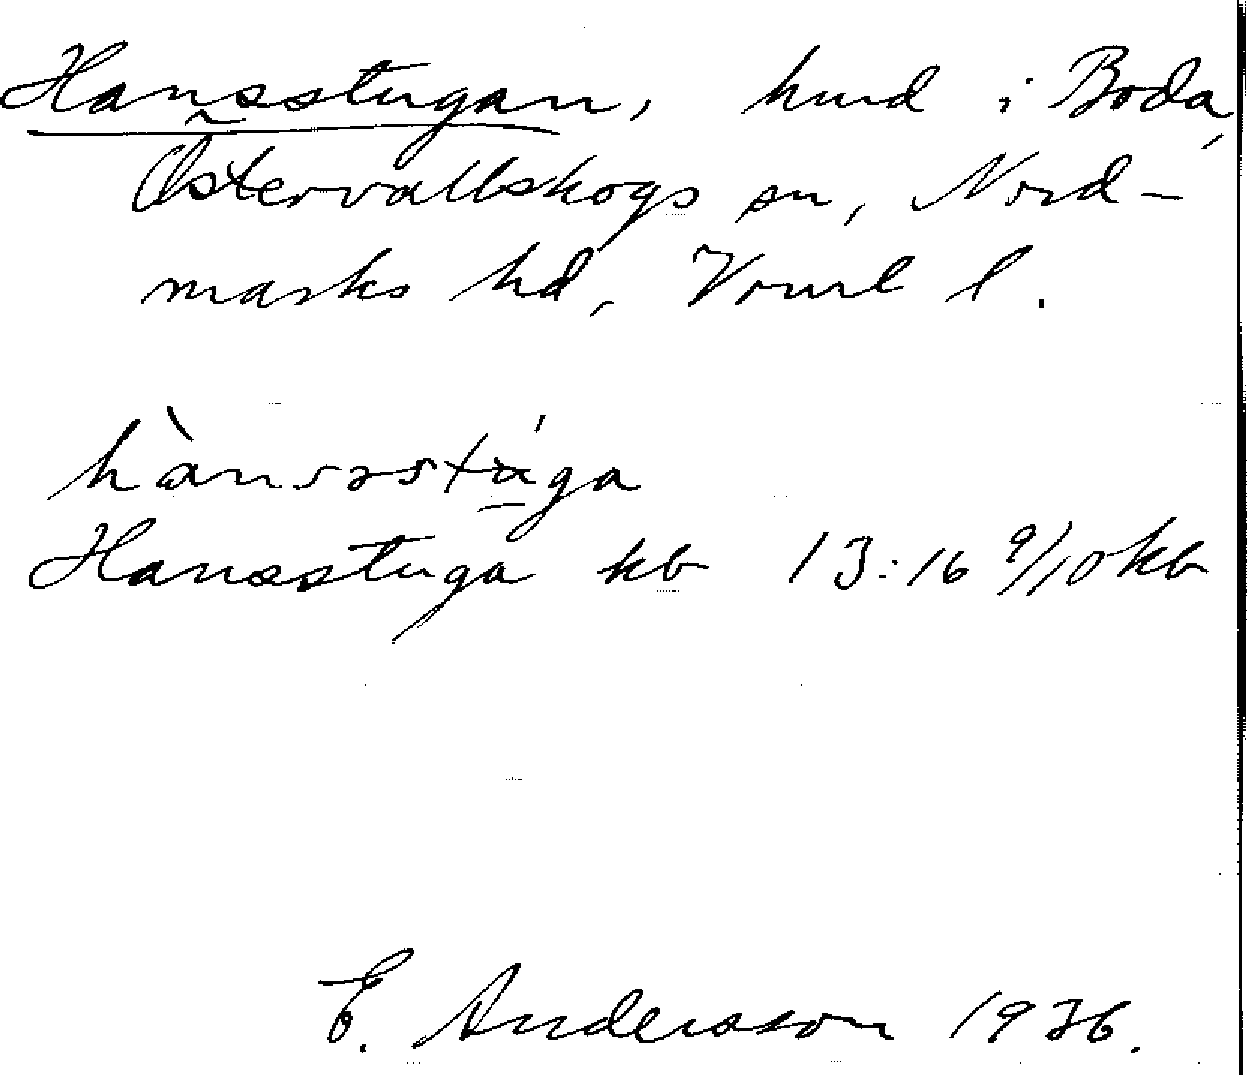 Hansstugan, hmd i Boda,
Östervallskogs sn, Nord-
marks hd, Vrml l.
hànsəstúga
Hansstuga kb 13:16 9/10 kb
E. Andersson 1936.